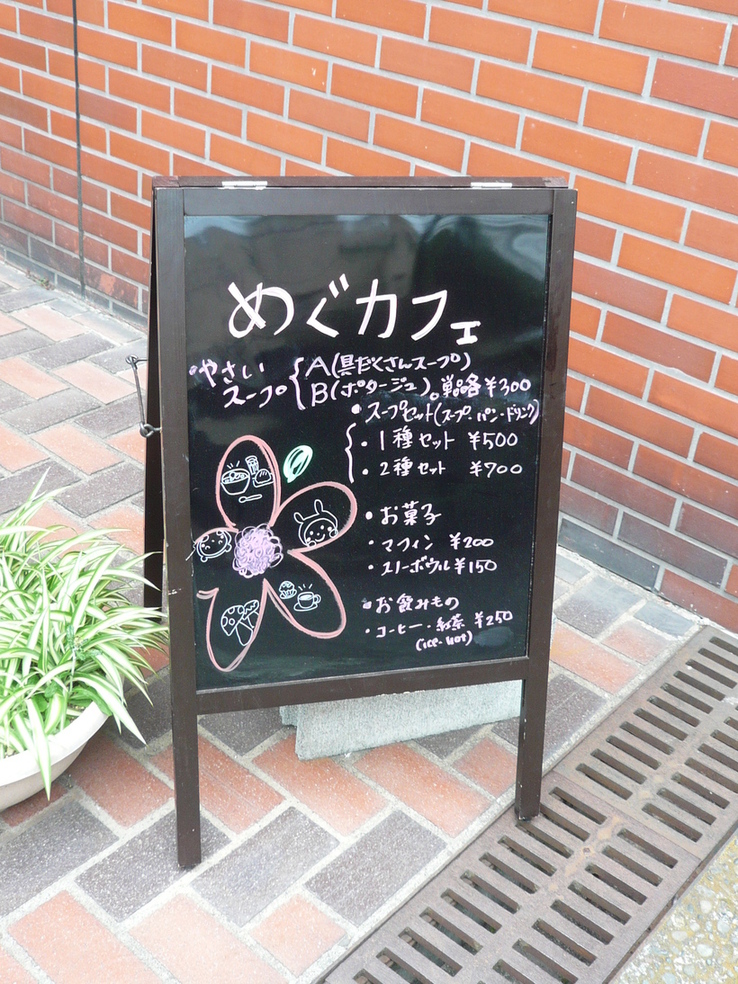 めぐカフェ
•やさいスープ
A(具だくさんスープ)
B(ポタージュ)。単品各¥300
•スープセット(スープ・パン・ドリンク)
・1種セット ¥500
・2種セット ¥700
•お菓子
・マフィン ¥200
・スノーボウル ¥150
•お飲みもの
・コーヒー・紅茶 ¥250
(ice・hot)